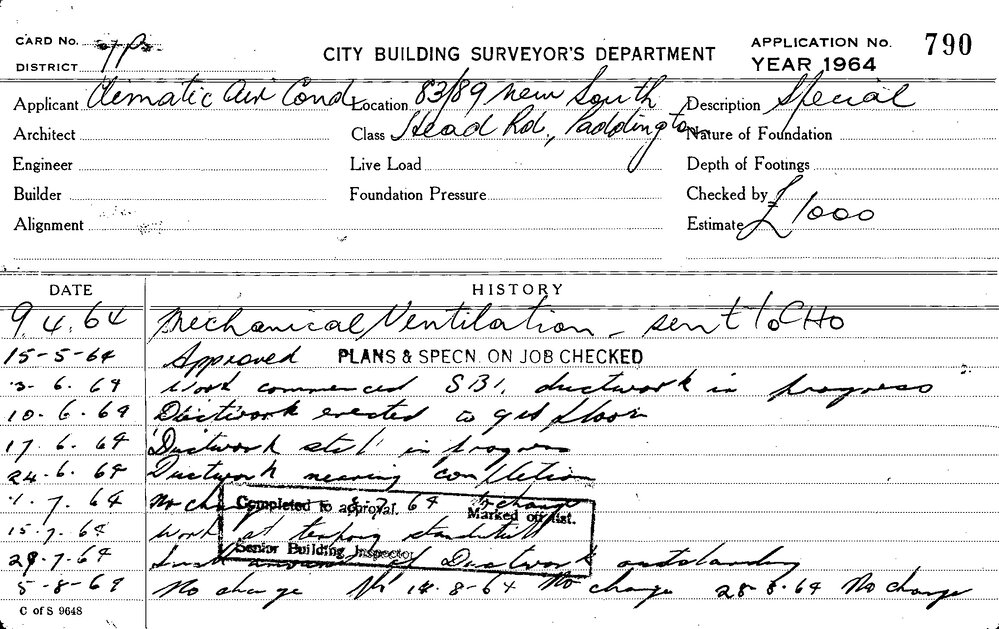 CARD No.
DISTRICT
CITY BUILDING SURVEYOR'S DEPARTMENT
APPLICATION No. 790
YEAR 1964
Applicant Climatic Air Cond. Location 83/89 New South Description Special
Architect Class Head Rd., Paddington Nature of Foundation
Engineer Live Load Depth of Footings
Builder Foundation Pressure Checked by
Alignment Estimate £1000
DATE HISTORY
9.4.64 Mechanical Ventilation - sent to CHO
15-5-64 Approved PLANS & SPECN. ON JOB CHECKED
3.6.64 Work commenced SB1, ductwork in progress
10.6.64 Ductwork erected to grd floor
17.6.64 Ductwork still in progress
24.6.64 Ductwork nearing completion
1.7.64 No change 8.7.64 No change
Completed to approval. Marked off list.
15.7.64 Work at tempory standstill
Senior Building Inspector
29.7.64 Small amount of Ductwork outstanding
5-8-64 No change 14.8-64 No change 28.8.64 No change
C of S 9648